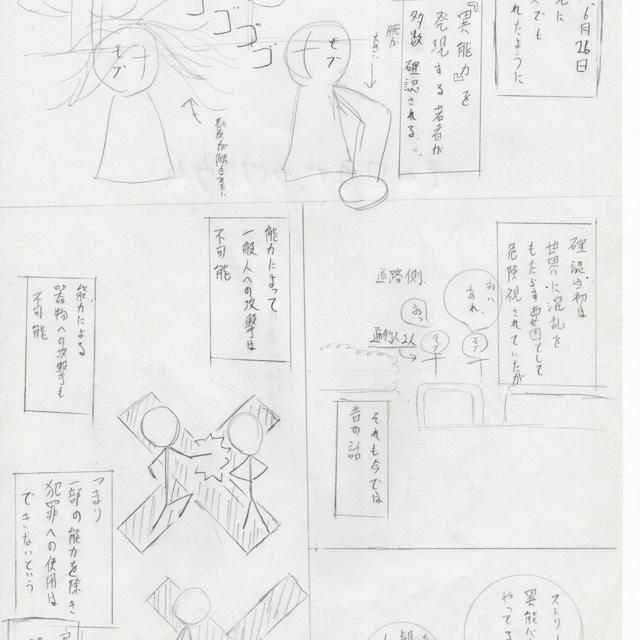 6月26日
『異能力』を
発現する若者が
多数確認される。
腕が
大きい
ゴゴゴゴ
モブ
モブ
確認当初は
世界に混乱を
もたらす要因として
危険視されていたが
おい
あれ、
おっ
道路側
通行人2人
モブ
モブ
それも今では
昔の話
能力によって
一般人への攻撃は
不可能
能力による
器物への攻撃も
不可能
つまり
一部の能力を除き
犯罪への使用は
できないという
ストリ
異能バ
やってる